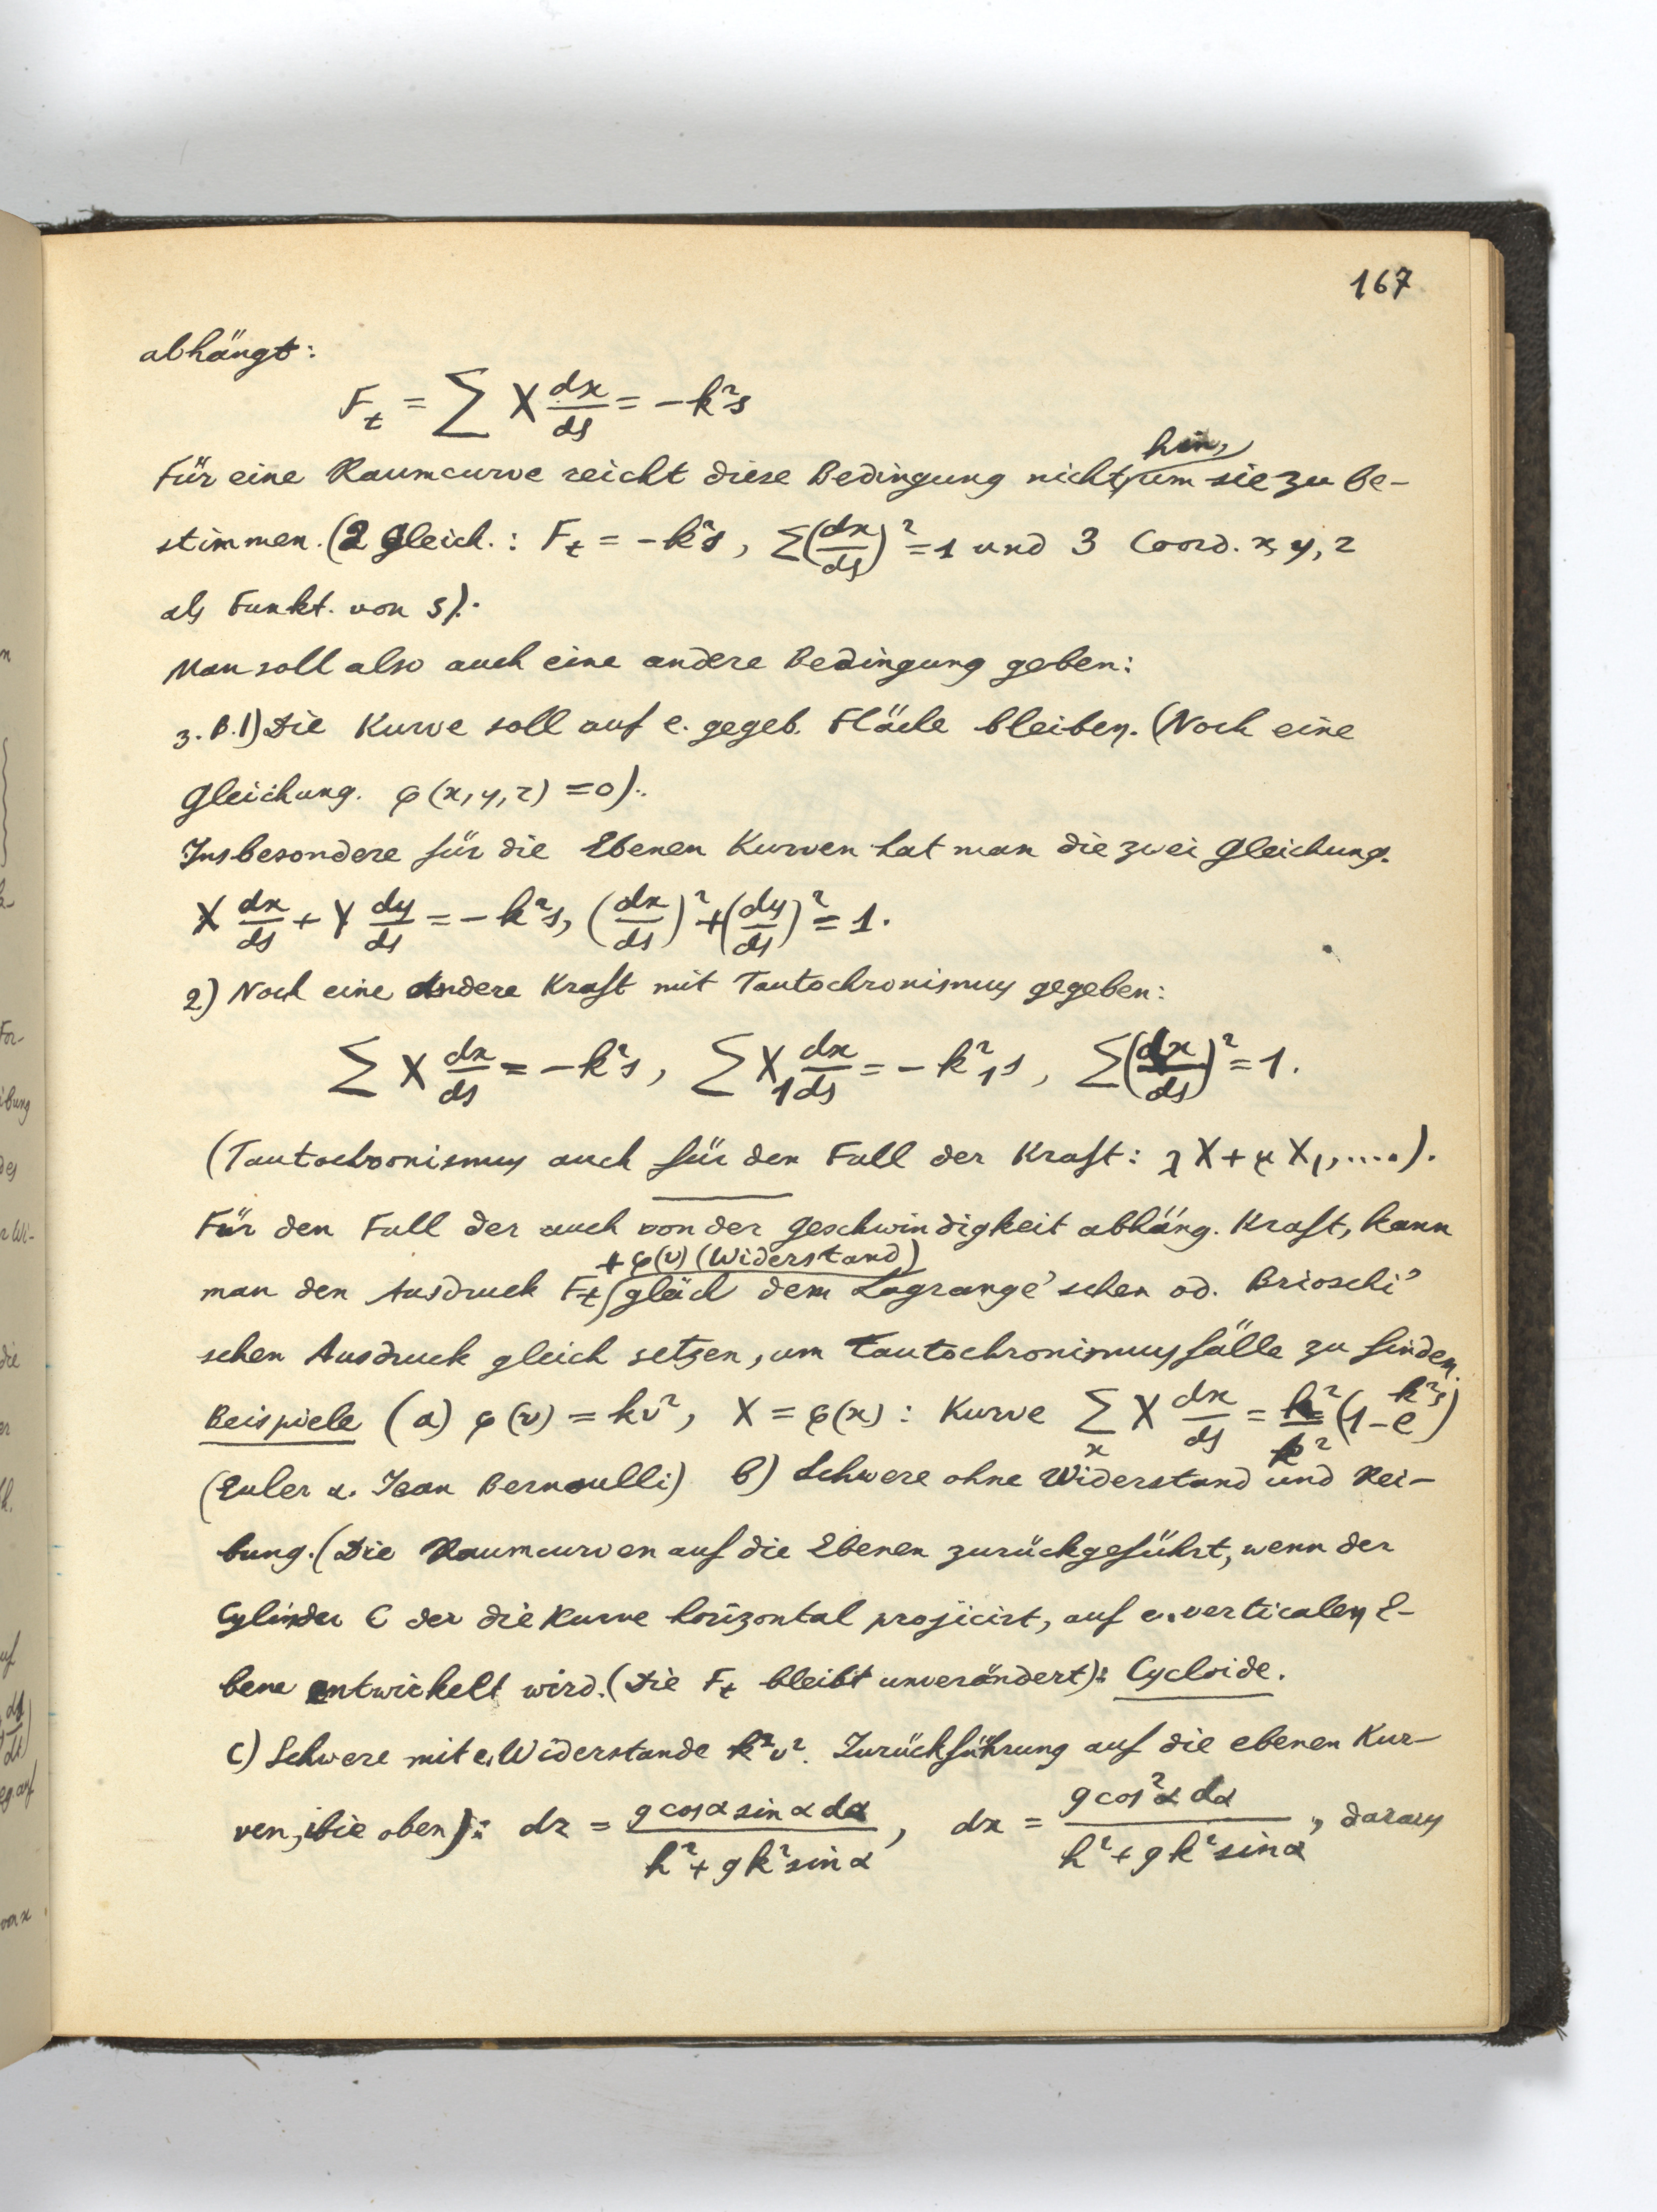 167
abhängt:
F_t = ∑ X dx/ds = −k²s
Für eine Raumcurve reicht diese Bedingung nicht hin, um sie zu be-
stimmen. (2 Gleich.: F_t = −k²s, Σ(dx/ds)² = 1 und 3 Coord. x, y, z
als Funkt. von s).
Man soll also auch eine andere Bedingung geben:
z. B. 1) Die Kurve soll auf e. gegeb. Fläche bleiben. (Noch eine
Gleichung. φ(x, y, z) = 0).
Insbesondere für die Ebenen Kurven hat man die zwei Gleichung.
X dx/ds + Y dy/ds = −k²s, (dx/ds)² + (dy/ds)² = 1.
2) Noch eine andere Kraft mit Tautochronismus gegeben:
∑ X dx/ds = −k²s, ∑ X₁ dx/ds = −k²₁s, ∑(dx/ds)² = 1.
(Tautochronismus auch für den Fall der Kraft: λX + μX₁, ....).
Für den Fall der auch von der Geschwindigkeit abhäng. Kraft, kann
+ φ(v) (Widerstand)
man den Ausdruck F_t gleich dem Lagrange'schen od. Brioschi'
schen Ausdruck gleich setzen, um Tautochronismusfälle zu finden.
Beispiele (a) φ(v) = kv², X = φ(x): Kurve ∑ X dx/ds = (1 − e^k²s)
(Euler u. Jean Bernoulli) b) Schwere ohne Widerstand und Rei-
bung. (Die Raumcurven auf die Ebenen zurückgeführt, wenn der
Cylinder C der die Kurve horizontal projicirt, auf e. verticalen E-
bene entwickelt wird. (Die F_t bleibt unverändert): Cycloide.
c) Schwere mit e. Widerstande k²v². Zurückführung auf die ebenen Kur-
ven, wie oben): dz = g cosα sinα dα / h² + gk² sinα, dx = g cos²α dα / h² + gk² sinα, daraus